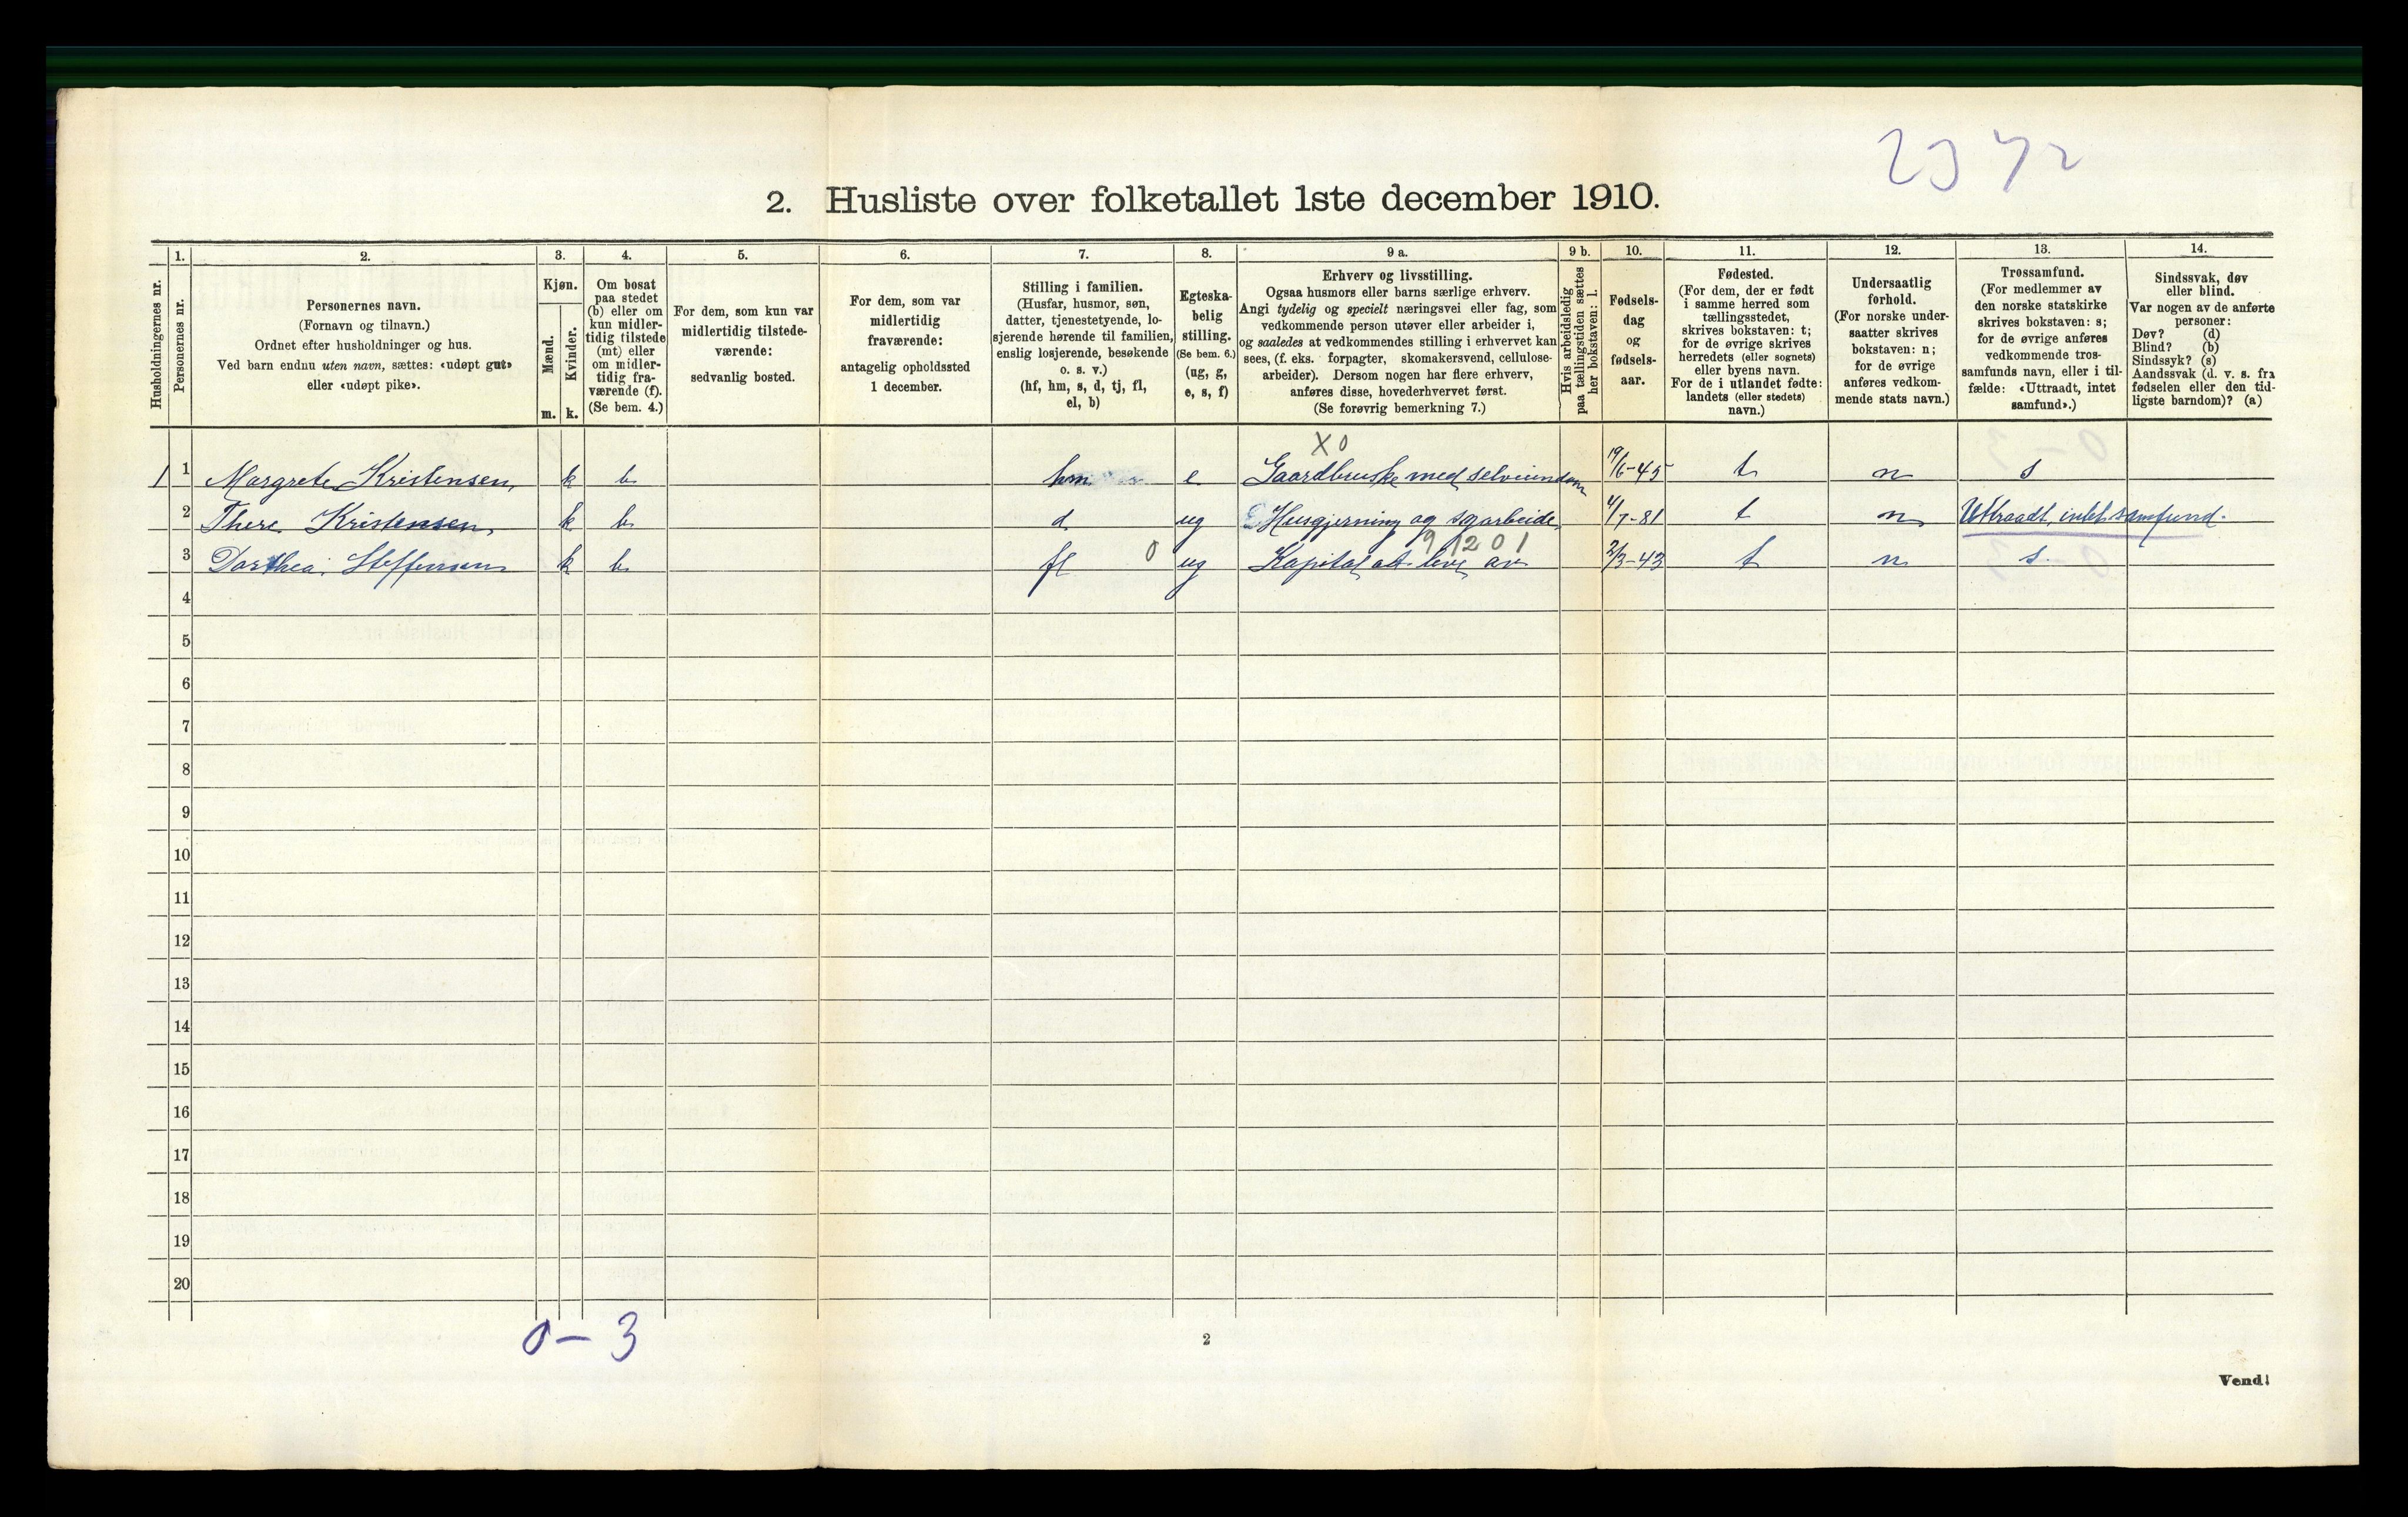 2372
2. Husliste over folketallet 1ste december 1910.
Husholdningernes nr.
1.
Personernes nr.
2.
Personernes navn.
(Fornavn og tilnavn.)
Ordnet efter husholdninger og hus.
Ved barn endnu uten navn, sættes: «udøpt gut»
eller «udøpt pike».
3.
Kjøn.
Mænd.
Kvinder.
m. k.
4.
Om bosat
paa stedet
(b) eller om
kun midler-
tidig tilstede
(mt) eller
om midler-
tidig fra-
værende (f).
(Se bem. 4.)
5.
For dem, som kun var
midlertidig tilstede-
værende:
sedvanlig bosted.
6.
For dem, som var
midlertidig
fraværende:
antagelig opholdssted
1 december.
7.
Stilling i familien.
(Husfar, husmor, søn,
datter, tjenestetyende, lo-
sjerende hørende til familien,
enslig losjerende, besøkende
o. s. v.)
(hf, hm, s, d, tj, fl,
el, b)
8.
Egteska-
belig
stilling.
(Se bem. 6.)
(ug, g,
e, s, f)
9 a.
Erhverv og livsstilling.
Ogsaa husmors eller barns særlige erhverv.
Angi tydelig og specielt næringsvei eller fag, som
vedkommende person utøver eller arbeider i,
og saaledes at vedkommendes stilling i erhvervet kan
sees, (f. eks. forpagter, skomakersvend, cellulose-
arbeider). Dersom nogen har flere erhverv,
anføres disse, hovederhvervet først.
(Se forøvrig bemerkning 7.)
9 b.
Hvis arbeidsledig
paa tællingstiden sættes
her bokstaven: l.
10.
Fødsels-
dag
og
fødsels-
aar.
11.
Fødested.
(For dem, der er født
i samme herred som
tællingsstedet,
skrives bokstaven: t;
for de øvrige skrives
herredets (eller sognets)
eller byens navn.
For de i utlandet fødte:
landets (eller stedets)
navn.)
12.
Undersaatlig
forhold.
(For norske under-
saatter skrives
bokstaven: n;
for de øvrige
anføres vedkom-
mende stats navn.)
13.
Trossamfund.
(For medlemmer av
den norske statskirke
skrives bokstaven: s;
for de øvrige anføres
vedkommende tros-
samfunds navn, eller i til-
fælde: «Uttraadt, intet
samfund».)
14.
Sindssvak, døv
eller blind.
Var nogen av de anførte
personer:
Døv? (d)
Blind? (b)
Sindssyk? (s)
Aandssvak (d. v. s. fra
fødselen eller den tid-
ligste barndom)? (a)
X0
1 1 Margrete Kristensen, k b hm e Gaardbruske med selveiendom 19/6-45 t n s
2 There Kristensen, k b d ug Husgjerning og syarbeide 4/7-81 t n Uttraadt, intet samfund.
0 91201
3 Dorthea Steffensen k b fl ug Kapital at leve av 2/3-43 t n s.
4
5
6
7
8
9
10
11
12
13
14
15
16
17
18
19
20
0-3
2
Vend!